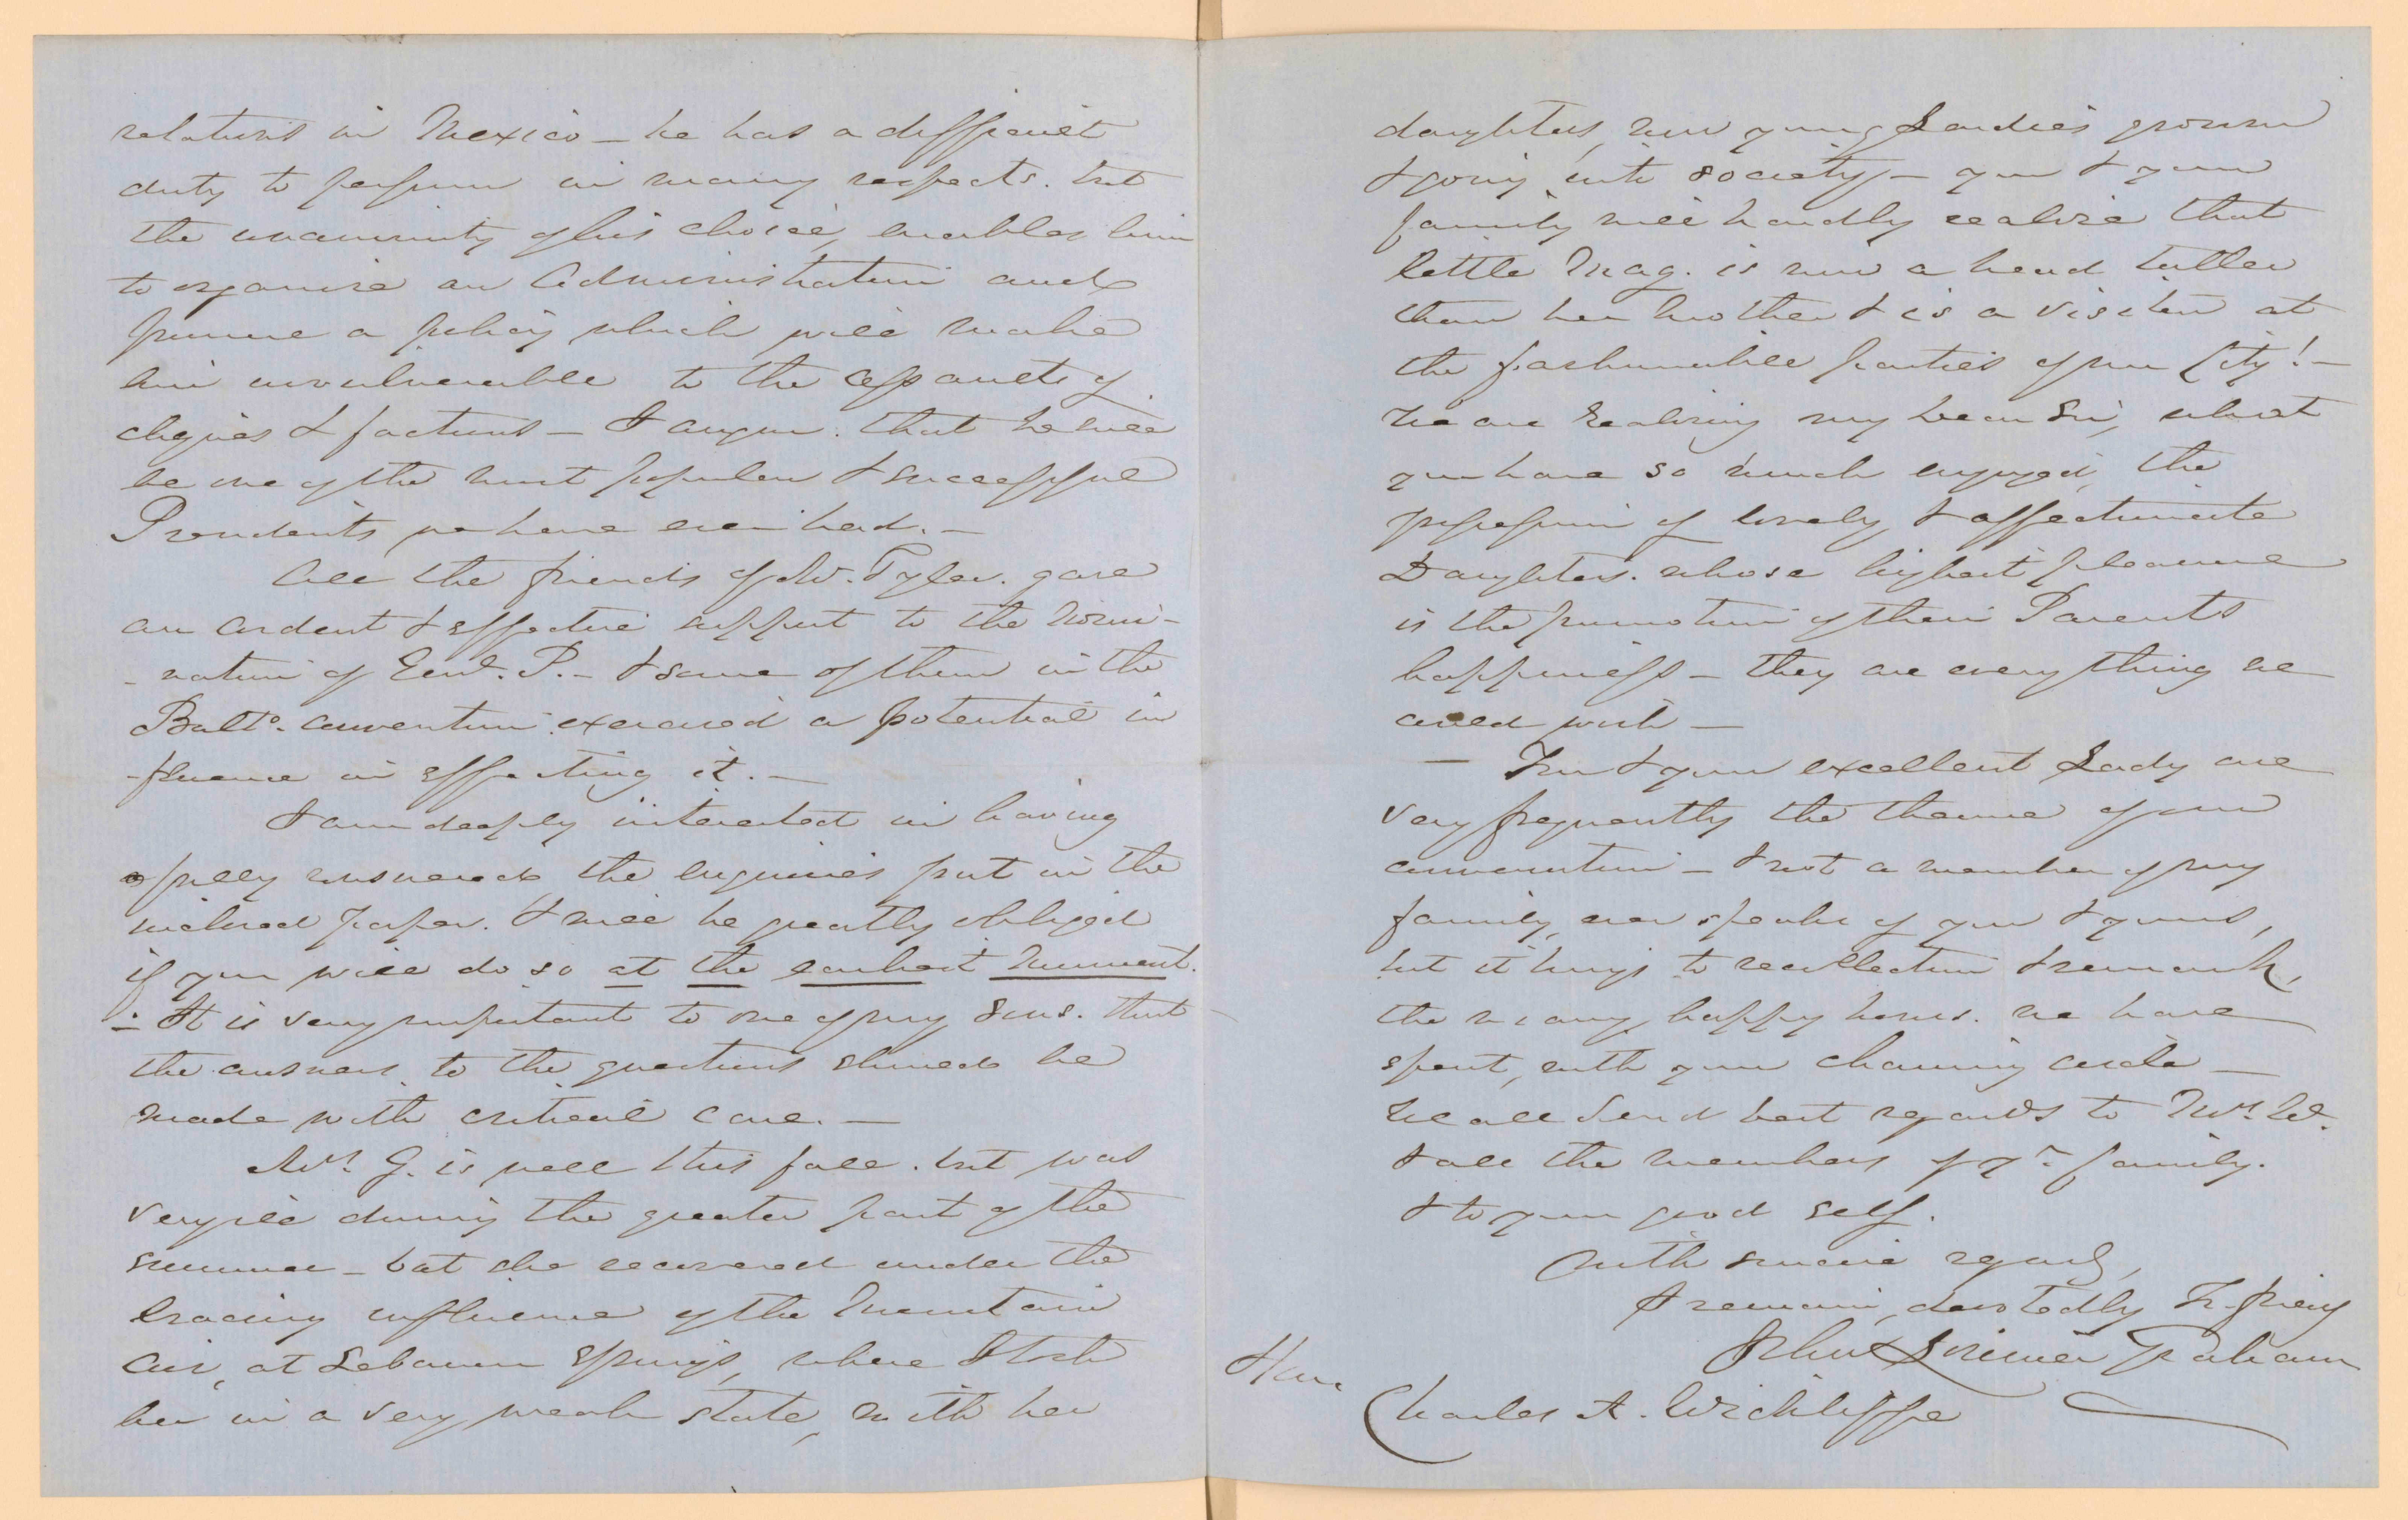 relations in Mexico — he has a difficult
duty to perform in many respects. but
the unanimity of his choice, enables him
to organise an Administration and
pursue a policy which will make
him invulnerable to the assaults of
cliques & factions — I augur. that he will
be one of the most popular & successful
Presidents we have ever had. —
All the friends of Mr. Tyler. gave
an ardent & effective support to the nomi-
-nation of Genl. P. — & some of them in the
Balto. convention. exercised a potential in
-fluence in effecting it. —
I am deeply interested in having
fully answered the enquiries put in the
inclosed paper. & will be greatly obliged
if you will do so at the earliest moment.
— It is very important to one of my sons. that
the answers to the questions should be
made with critical care. —
Mrs. G. is well this fall. but was
very ill during the greater part of the
summer — but she recovered under the
bracing influence of the Mountain
air, at Lebanon Springs, where I took
her in a very weak state, with her
daughters, now young Ladies grown
& going into society — you & your
family will hardly realise that
little Mag. is now a head taller
than her mother & is a visitor at
the fashionable parties of our City! —
We are realising my Dear Sir, what
you have so much enjoyed, the
possession of lovely & affectionate
Daughters. whose highest pleasure
is the promotion of their Parents
happiness — they are every thing we
could wish —
— You & your excellent Lady are
very frequently the theme of our
conversation — & not a member of my
family, ever speaks of you & yours,
but it brings to recollection & remark,
the many happy hours. we have
spent, with your charming circle —
We all send best regards to Mrs. W.
& all the members of yr. family.
& to your good self.
With sincere regard,
I remain, devotedly Yr. friend
John Lorimer Graham
Hon.
Charles A. Wickliffe